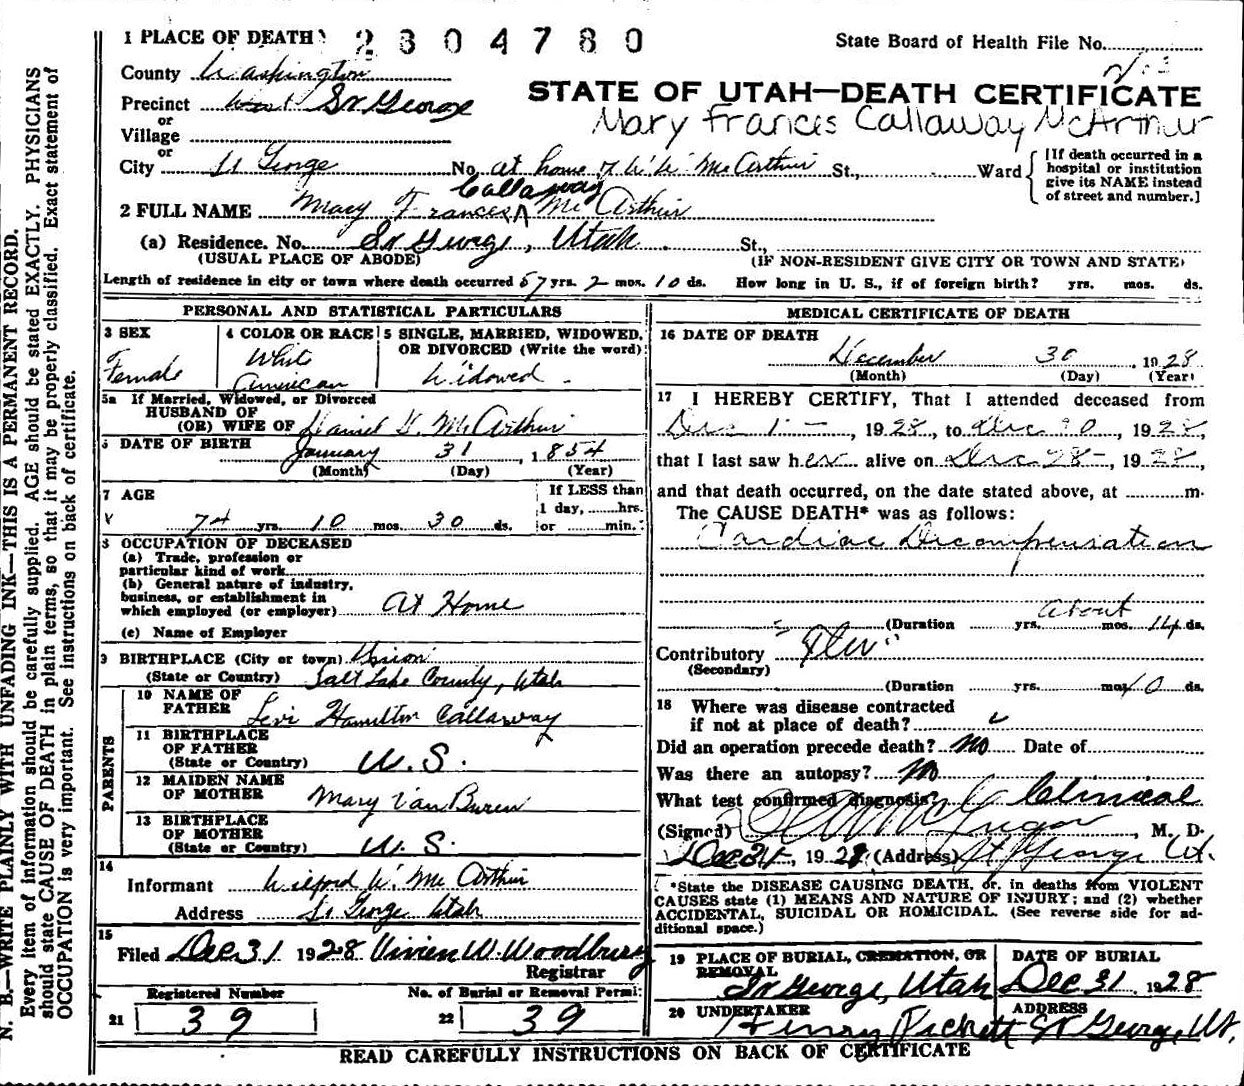 1 PLACE OF DEATH 2304780 State Board of Health File No.
County Washington
Precinct St George
or
Village
or
STATE OF UTAH—DEATH CERTIFICATE
Mary Frances Callaway McArthur
City St George No. at home of W. W. McArthur St., Ward [If death occurred in a hospital or institution give its NAME instead of street and number.]
2 FULL NAME Mary Frances Callaway McArthur
(a) Residence. No. St George, Utah. St.,
(USUAL PLACE OF ABODE) (IF NON-RESIDENT GIVE CITY OR TOWN AND STATE)
Length of residence in city or town where death occurred 57 yrs. 2 mos. 10 ds. How long in U. S., if of foreign birth? yrs. mos. ds.
PERSONAL AND STATISTICAL PARTICULARS
3 SEX
Female
4 COLOR OR RACE
White
American
5 SINGLE, MARRIED, WIDOWED, OR DIVORCED (Write the word)
Widowed.
5a If Married, Widowed, or Divorced
HUSBAND OF
(OR) WIFE OF Daniel H. McArthur
6 DATE OF BIRTH
January 31, 1854
(Month) (Day) (Year)
7 AGE
74 yrs. 10 mos. 30 ds.
If LESS than
1 day, hrs.
or min.
8 OCCUPATION OF DECEASED
(a) Trade, profession or
particular kind of work
(b) General nature of industry,
business, or establishment in
which employed (or employer) At Home
(c) Name of Employer
9 BIRTHPLACE (City or town) Union
(State or Country) Salt Lake County, Utah
PARENTS
10 NAME OF
FATHER Levi Hamilton Callaway
11 BIRTHPLACE
OF FATHER
(State or Country) U. S.
12 MAIDEN NAME
OF MOTHER Mary Van Buren
13 BIRTHPLACE
OF MOTHER
(State or Country) U. S.
14
Informant Wilford W. McArthur
Address St George Utah
15
Filed Dec 31 1928 Vivien W. Woodbury
Registrar
Registered Number
21 39
No. of Burial or Removal Permit
22 39
MEDICAL CERTIFICATE OF DEATH
16 DATE OF DEATH
December 30, 1928
(Month) (Day) (Year)
17 I HEREBY CERTIFY, That I attended deceased from
Dec 1 -, 1928, to Dec 30, 1928,
that I last saw her alive on Dec 28-, 1928,
and that death occurred, on the date stated above, at m.
The CAUSE DEATH* was as follows:
Cardiac Decompensation
about
(Duration yrs. mos. 14 ds.
Contributory "Flu"
(Secondary)
(Duration yrs. mos. 10 ds.
18 Where was disease contracted
if not at place of death?
Did an operation precede death? No Date of
Was there an autopsy? No
What test confirmed diagnosis? Clinical
(Signed) McGregor, M. D.
Dec 31-, 1928 (Address) St George Ut.
[*State the DISEASE CAUSING DEATH, or, in deaths from VIOLENT
CAUSES state (1) MEANS AND NATURE OF INJURY; and (2) whether
ACCIDENTAL, SUICIDAL OR HOMICIDAL. (See reverse side for ad-
ditional space.)
19 PLACE OF BURIAL, CREMATION, OR
REMOVAL
St George, Utah
DATE OF BURIAL
Dec 31 1928
20 UNDERTAKER
Henry Pickett
ADDRESS
St George, Ut.
READ CAREFULLY INSTRUCTIONS ON BACK OF CERTIFICATE
N. B.—WRITE PLAINLY WITH UNFADING INK—THIS IS A PERMANENT RECORD.
Every item of information should be carefully supplied. AGE should be stated EXACTLY. PHYSICIANS
should state CAUSE OF DEATH in plain terms, so that it may be properly classified. Exact statement of
OCCUPATION is very important. See instructions on back of certificate.